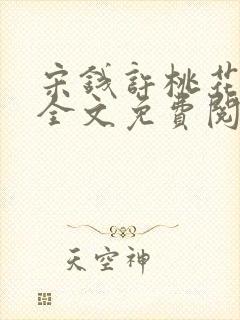 宋钱許桃花
全文免費閱
天空神